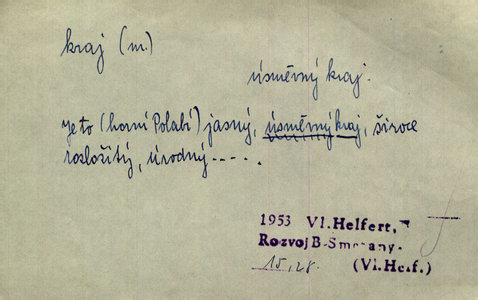 kraj (m.)
úsměvný kraj.
Je to (horní Polabí) jasný, úsměvný kraj, široce
rozložitý, úrodný-----.
1953 Vl. Helfert,
Rozvoj B. Smetany.
15, 28. (Vl. Helf.)